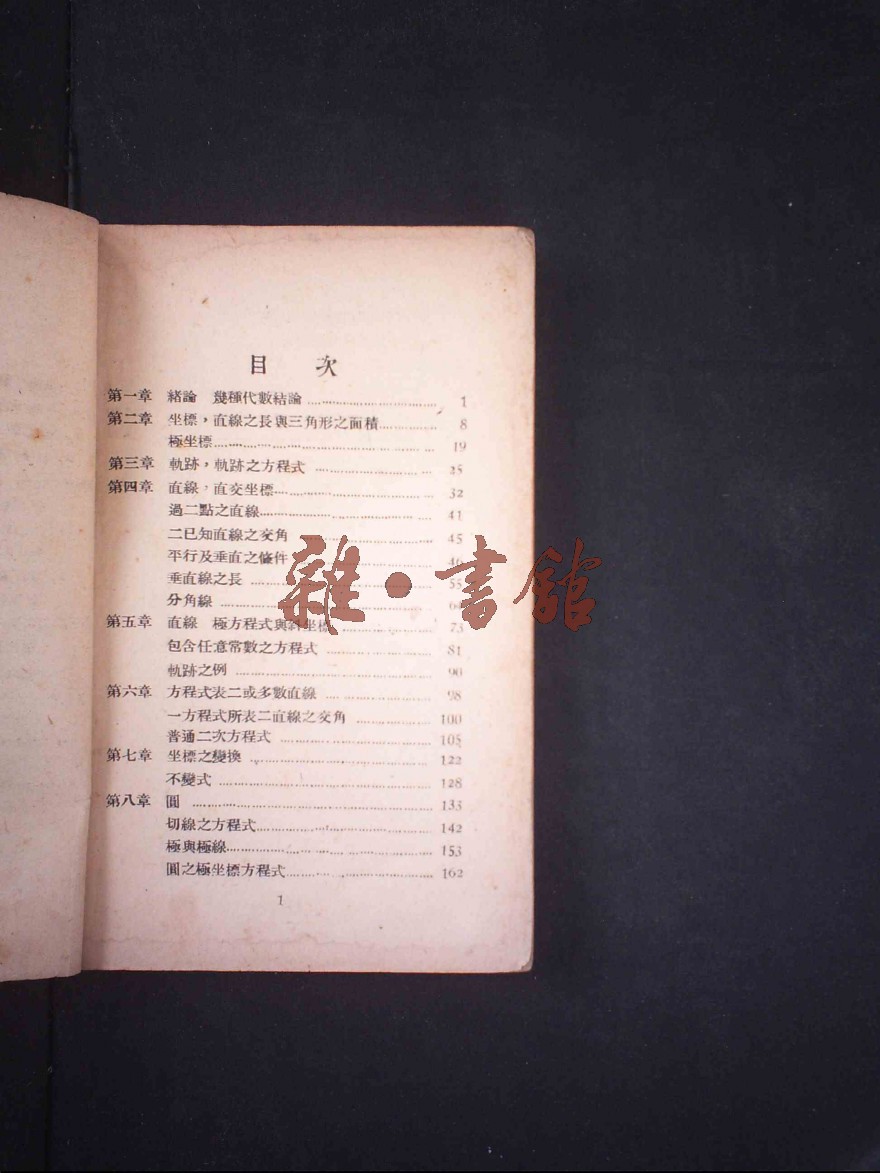 目 次
第一章 緒論 幾種代數結論 ........ 1
第二章 坐標，直線之長與三角形之面積 ........ 8
極坐標 ........ 19
第三章 軌跡，軌跡之方程式 ........ 25
第四章 直線，直交坐標 ........ 32
過二點之直線 ........ 41
二已知直線之交角 ........ 45
平行及垂直之條件 ........ 46
垂直線之長 ........ 55
分角線 ........
第五章 直線 極方程式與斜坐標 ........ 73
包含任意常數之方程式 ........ 81
軌跡之例 ........ 90
第六章 方程式表二或多數直線 ........ 98
一方程式所表二直線之交角 ........ 100
普通二次方程式 ........ 105
第七章 坐標之變換 ........ 122
不變式 ........ 128
第八章 圓 ........ 133
切線之方程式 ........ 142
極與極線 ........ 153
圓之極坐標方程式 ........ 162
1
雜·書館